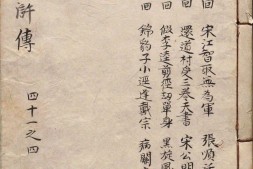 回 宋江智取無為軍 張順
回 還道村受三卷天書 宋公明
回 假李逵剪徑劫單身 黑旋風
回 錦豹子小徑逢戴宗 病關
滸傳
四十一之四